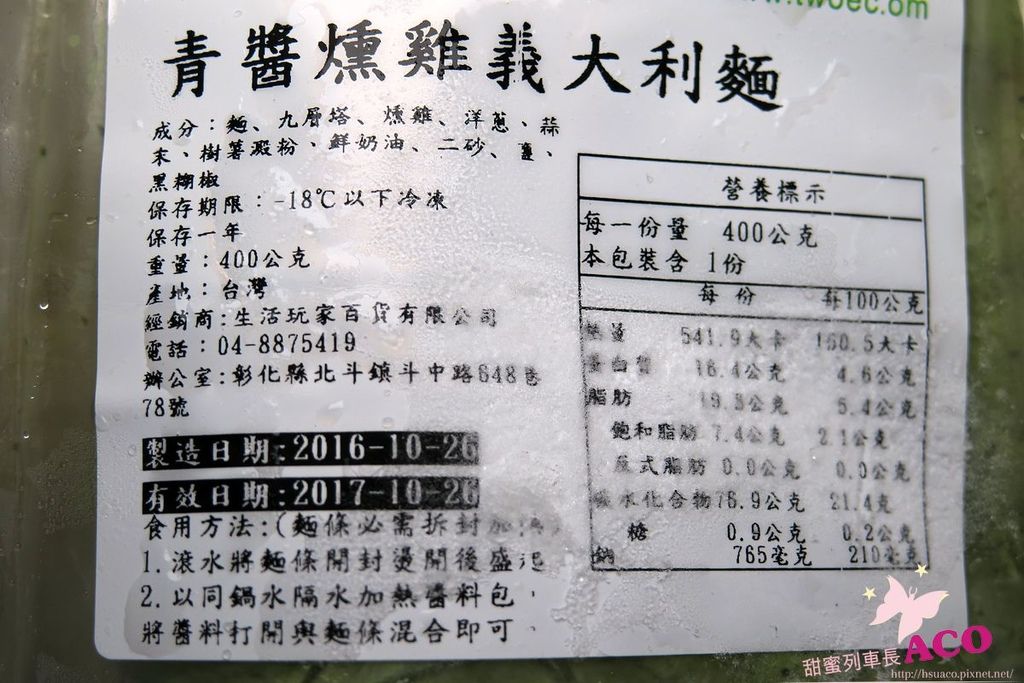 www.twoec.om
青醬燻雞義大利麵
成分：麵、九層塔、燻雞、洋蔥、蒜
末、樹薯澱粉、鮮奶油、二砂、鹽、
黑糊椒
保存期限：-18℃以下冷凍
保存一年
重量：400公克
產地：台灣
經銷商：生活玩家百貨有限公司
電話：04-8875419
辦公室：彰化縣北斗鎮斗中路648巷
78號
製造日期：2016-10-26
有效日期：2017-10-26
食用方法：(麵條必需拆封加
1.滾水將麵條開封燙開後盛起
2.以同鍋水隔水加熱醬料包，
將醬料打開與麵條混合即可.
營養標示
每一份量 400公克
本包裝含 1份
每 份 每100公克
熱量 541.9大卡 150.5大卡
蛋白質 16.4公克 4.6公克
脂肪 19.3公克 5.4公克
飽和脂肪 7.4公克 2.1公克
反式脂肪 0.0公克 0.0公克
碳水化合物76.9公克 21.4克
糖 0.9公克 0.2公克
鈉 765毫克 210毫克
甜蜜列車長ACO
http://hsuaco.pixnet.net/